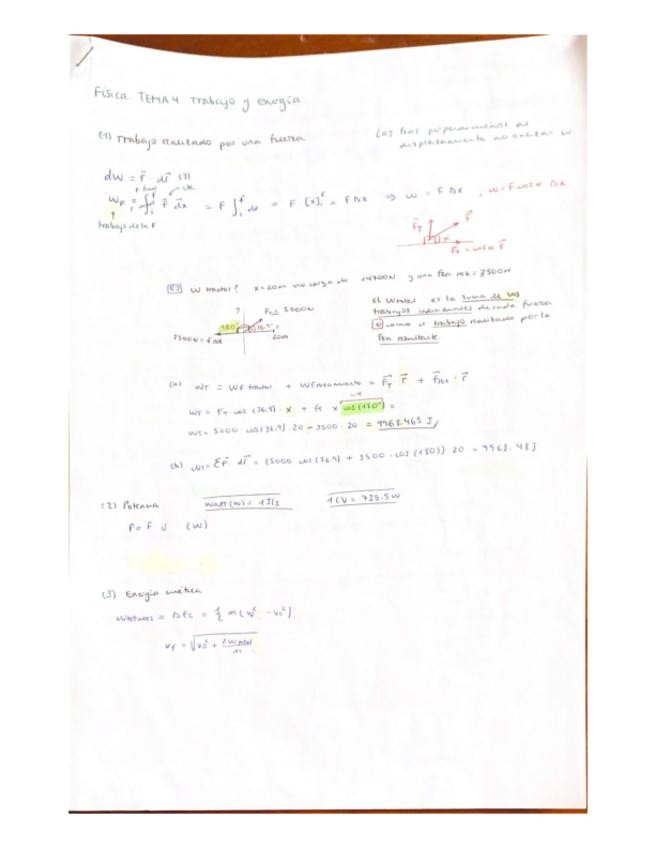 Física. TEMA 4 Trabajo y energía
(1) Trabajo realizado por una fuerza
Las fzas perpendiculares al
desplazamiento no realizan W
dW = F⃗ · dr⃗ (J)
W_F = ∫ᵢᶠ F⃗ dx⃗ = F ∫ᵢᶠ dx = F [x]ᵢᶠ = F Δx ⇒ W = F Δx , W = F cos α Δx
trabajo de la F
W tractor? x=20m una carga de 14700N y una fza roz = 3500N
5000N
180° 36.9°
3500N = f roz
20m
El Wtotal es la suma de los
trabajos individuales de cada fuerza
o como el trabajo realizado por la
fza resultante.
(a) WT = WF tractor + WFrozamiento = F⃗T · r⃗ + F⃗roz · r⃗
-1
WT = FT · cos (36.9) · x + fr · x cos(180°) =
WT = 5000 · cos(36.9) · 20 - 3500 · 20 = 9968.465 J
(b) WT = ΣF⃗ · dr⃗ = (5000 cos(36.9) + 3500 · cos(180)) 20 = 9968.48J
(2) Potencia
Watt (W) = 1J/s
1CV = 735.5W
P = F v (W)
(3) Energía cinética
Wtotales = ΔEc = 1/2 m (vf² - v0²)
vf = √(v0² + 2Wtotal/m)